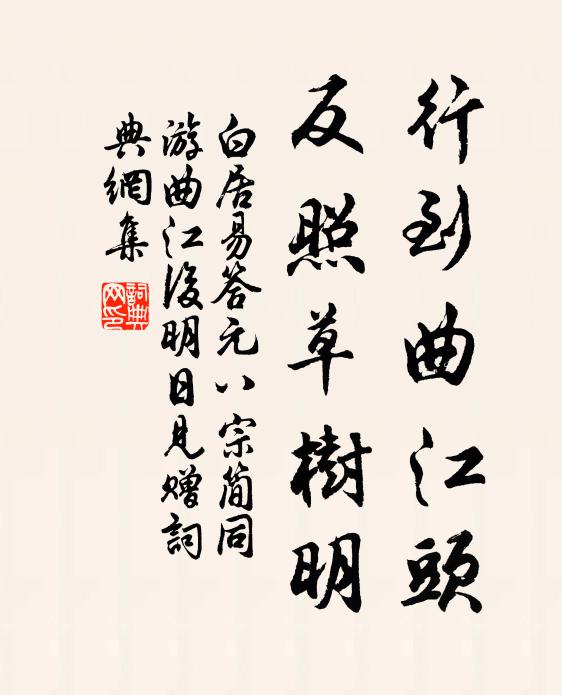 行到曲江頭
反照草樹明
白居易答元八宗简同
游曲江後明日見赠詞
典網集
詞典
网印